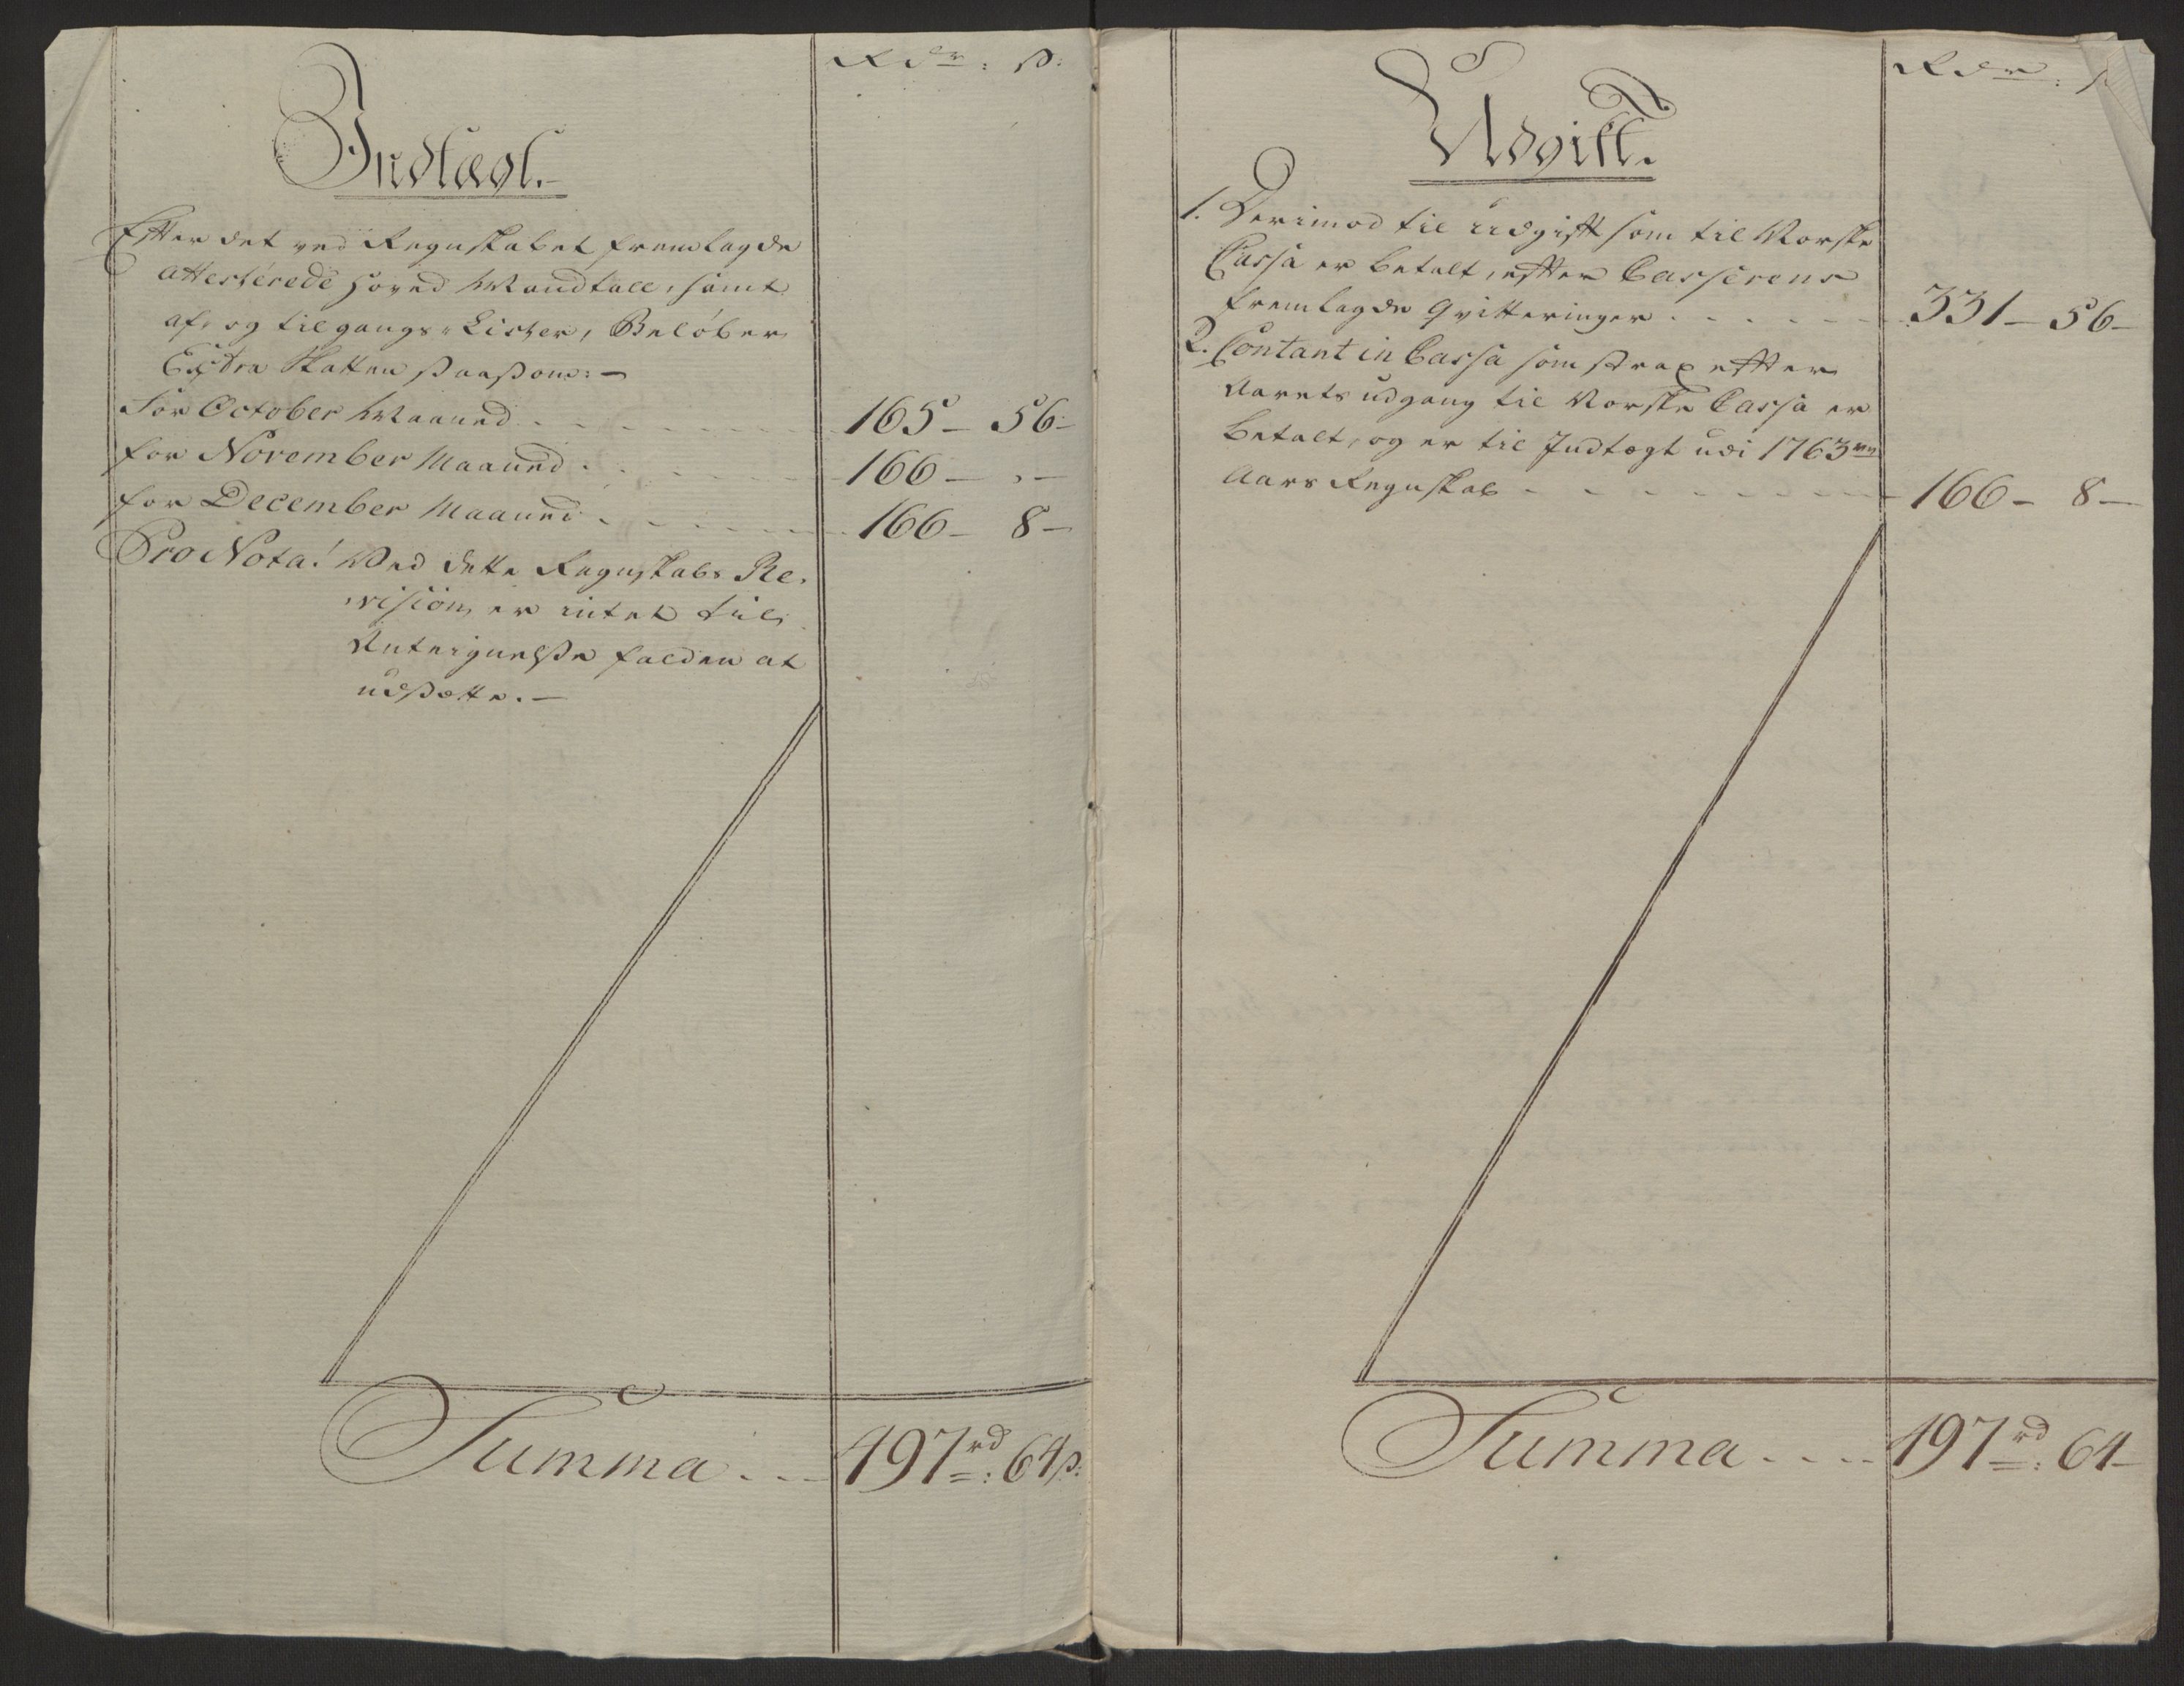 Rdr: ß:
Indtægt.
Efter det ved Regnskabet fremlagde
attesterede Hoved Mandtall, samt
af- og tilgangs- Lister, Beløber
Extra Skatten saasom: -
For October Maaned - - - 165 - 56 -
for November Maaned - - - 166 - , -
for December Maaned - - - 166 - 8 -
Pro Nota! Ved dette Regnskabs Re-
vision, er intet til
Antegnelse falden at
udsætte. -
Summa - - - 497rd: 64ß:
Rdr: ß
Udgift.
1. Derimod til udgift som til Norske
Cassa er betalt, efter Casserens
fremlagde Qvitteringer - - - 331 - 56 -
2. Contant in Cassa som strax efter
Aarets udgang til Norske Cassa er
betalt, og er til Indtægt udi 1763
Aars Regnskab - - - 166 - 8 -
Summa - - - - 497rd: 64 -